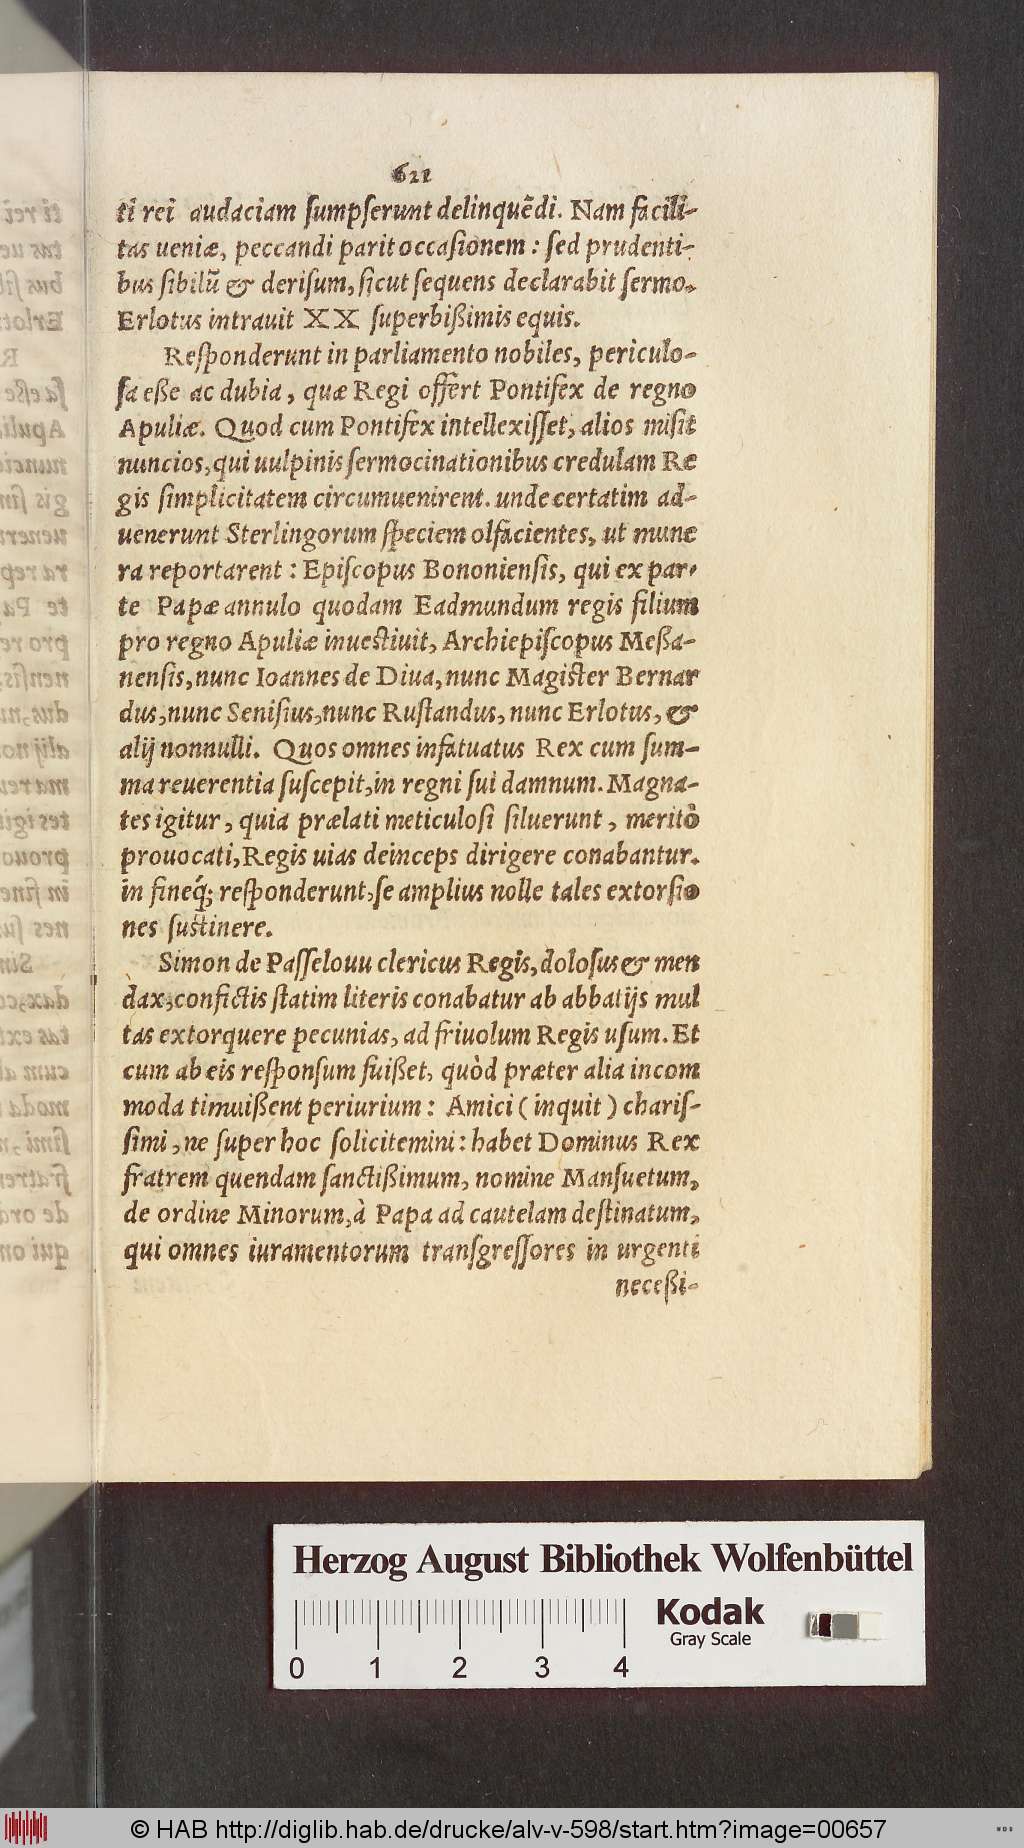 621
ti rei audaciam ſumpſerunt delinquẽdi. Nam facili-
tas ueniæ, peccandi parit occaſionem: ſed prudenti-
bus ſibilũ & deriſum, ſicut ſequens declarabit ſermo.
Erlotus intrauit XX ſuperbißimis equis.
Reſponderunt in parliamento nobiles, periculo-
ſa eße ac dubia, quæ Regi offert Pontifex de regno
Apuliæ. Quod cum Pontifex intellexiſſet, alios miſit
nuncios, qui uulpinis ſermocinationibus credulam Re
gis ſimplicitatem circumuenirent. unde certatim ad-
uenerunt Sterlingorum ſpeciem olfacientes, ut mune
ra reportarent: Epiſcopus Bononienſis, qui ex par-
te Papæ annulo quodam Eadmundum regis filium
pro regno Apuliæ inueſtiuit, Archiepiſcopus Meßa-
nenſis, nunc Ioannes de Diua, nunc Magiſter Bernar
dus, nunc Seniſius, nunc Ruſtandus, nunc Erlotus, &
alij nonnulli. Quos omnes infatuatus Rex cum ſum-
ma reuerentia ſuſcepit, in regni ſui damnum. Magna-
tes igitur, quia prælati meticuloſi ſiluerunt, meritò
prouocati, Regis uias deinceps dirigere conabantur.
in fineq́; reſponderunt, ſe amplius nolle tales extorſio
nes ſuſtinere.
Simon de Paſſelouu clericus Regis, doloſus & men
dax, confictis ſtatim literis conabatur ab abbatijs mul
tas extorquere pecunias, ad friuolum Regis uſum. Et
cum ab eis reſponſum fuißet, quòd præter alia incom
moda timuißent periurium: Amici (inquit) chariſ-
ſimi, ne ſuper hoc ſolicitemini: habet Dominus Rex
fratrem quendam ſanctißimum, nomine Manſuetum,
de ordine Minorum, à Papa ad cautelam deſtinatum,
qui omnes iuramentorum tranſgreſſores in urgenti
neceßi-
Herzog August Bibliothek Wolfenbüttel
Kodak
Gray Scale
0 1 2 3 4
© HAB http://diglib.hab.de/drucke/alv-v-598/start.htm?image=00657